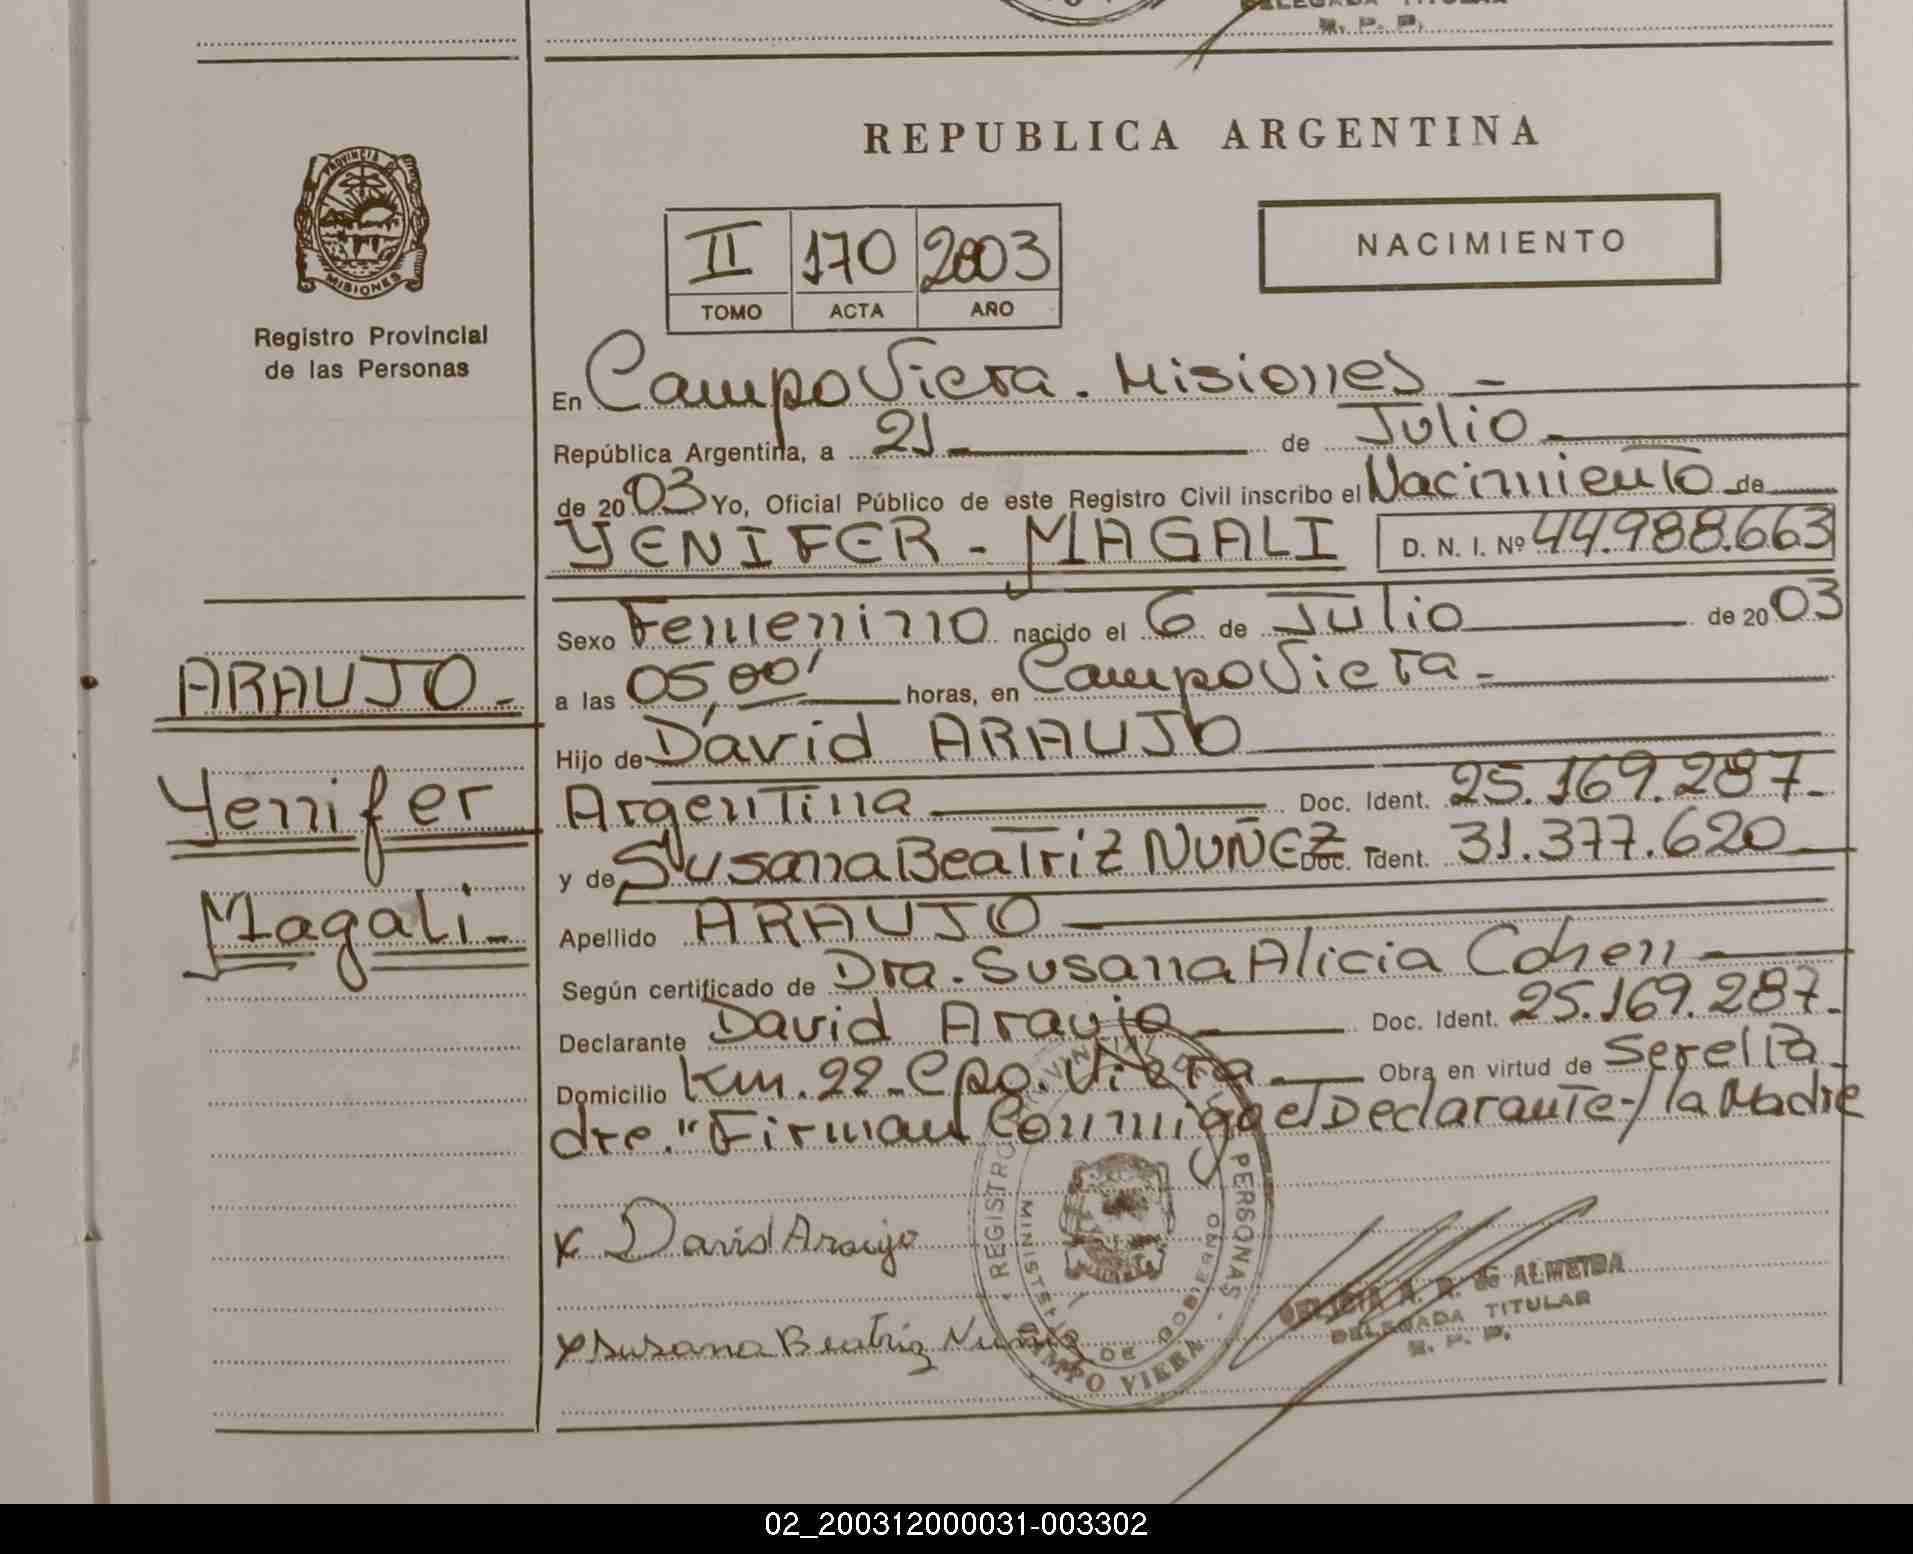 DELEGADA TITULAR
R. P. P.
REPUBLICA ARGENTINA
PROVINCIA DE
MISIONES
Registro Provincial
de las Personas
II 170 2003
TOMO ACTA AÑO
NACIMIENTO
En Campo Viera. Misiones -
República Argentina, a 21 de Julio
de 20 03 Yo, Oficial Público de este Registro Civil inscribo el Nacimiento de
YENIFER - MAGALI D. N. I. Nº 44.988.663
Sexo Femenino nacido el 6 de Julio de 20 03
a las 05,00' horas, en Campo Viera -
Hijo de David ARAUJO
Argentina Doc. Ident. 25.169.287.-
y de Susana Beatriz NUÑEZ - Doc. Ident. 31.377.620
Apellido ARAUJO
Según certificado de Dra. Susana Alicia Cohen
Declarante David Araujo Doc. Ident. 25.169.287.-
Domicilio Km. 22 - Cpo. Viera Obra en virtud de Ser el Pa
dre." Firman Conmigo el Declarante-/la Madre
ARAUJO -
Yenifer
Magali -
x David Araujo
x Susana Beatriz Nuñez
REGISTRO PROVINCIAL PERSONAS
MINISTERIO DE GOBIERNO
CAMPO VIERA
A. R. de ALMEIDA
DELEGADA TITULAR
R. P. P.
02_200312000031-003302